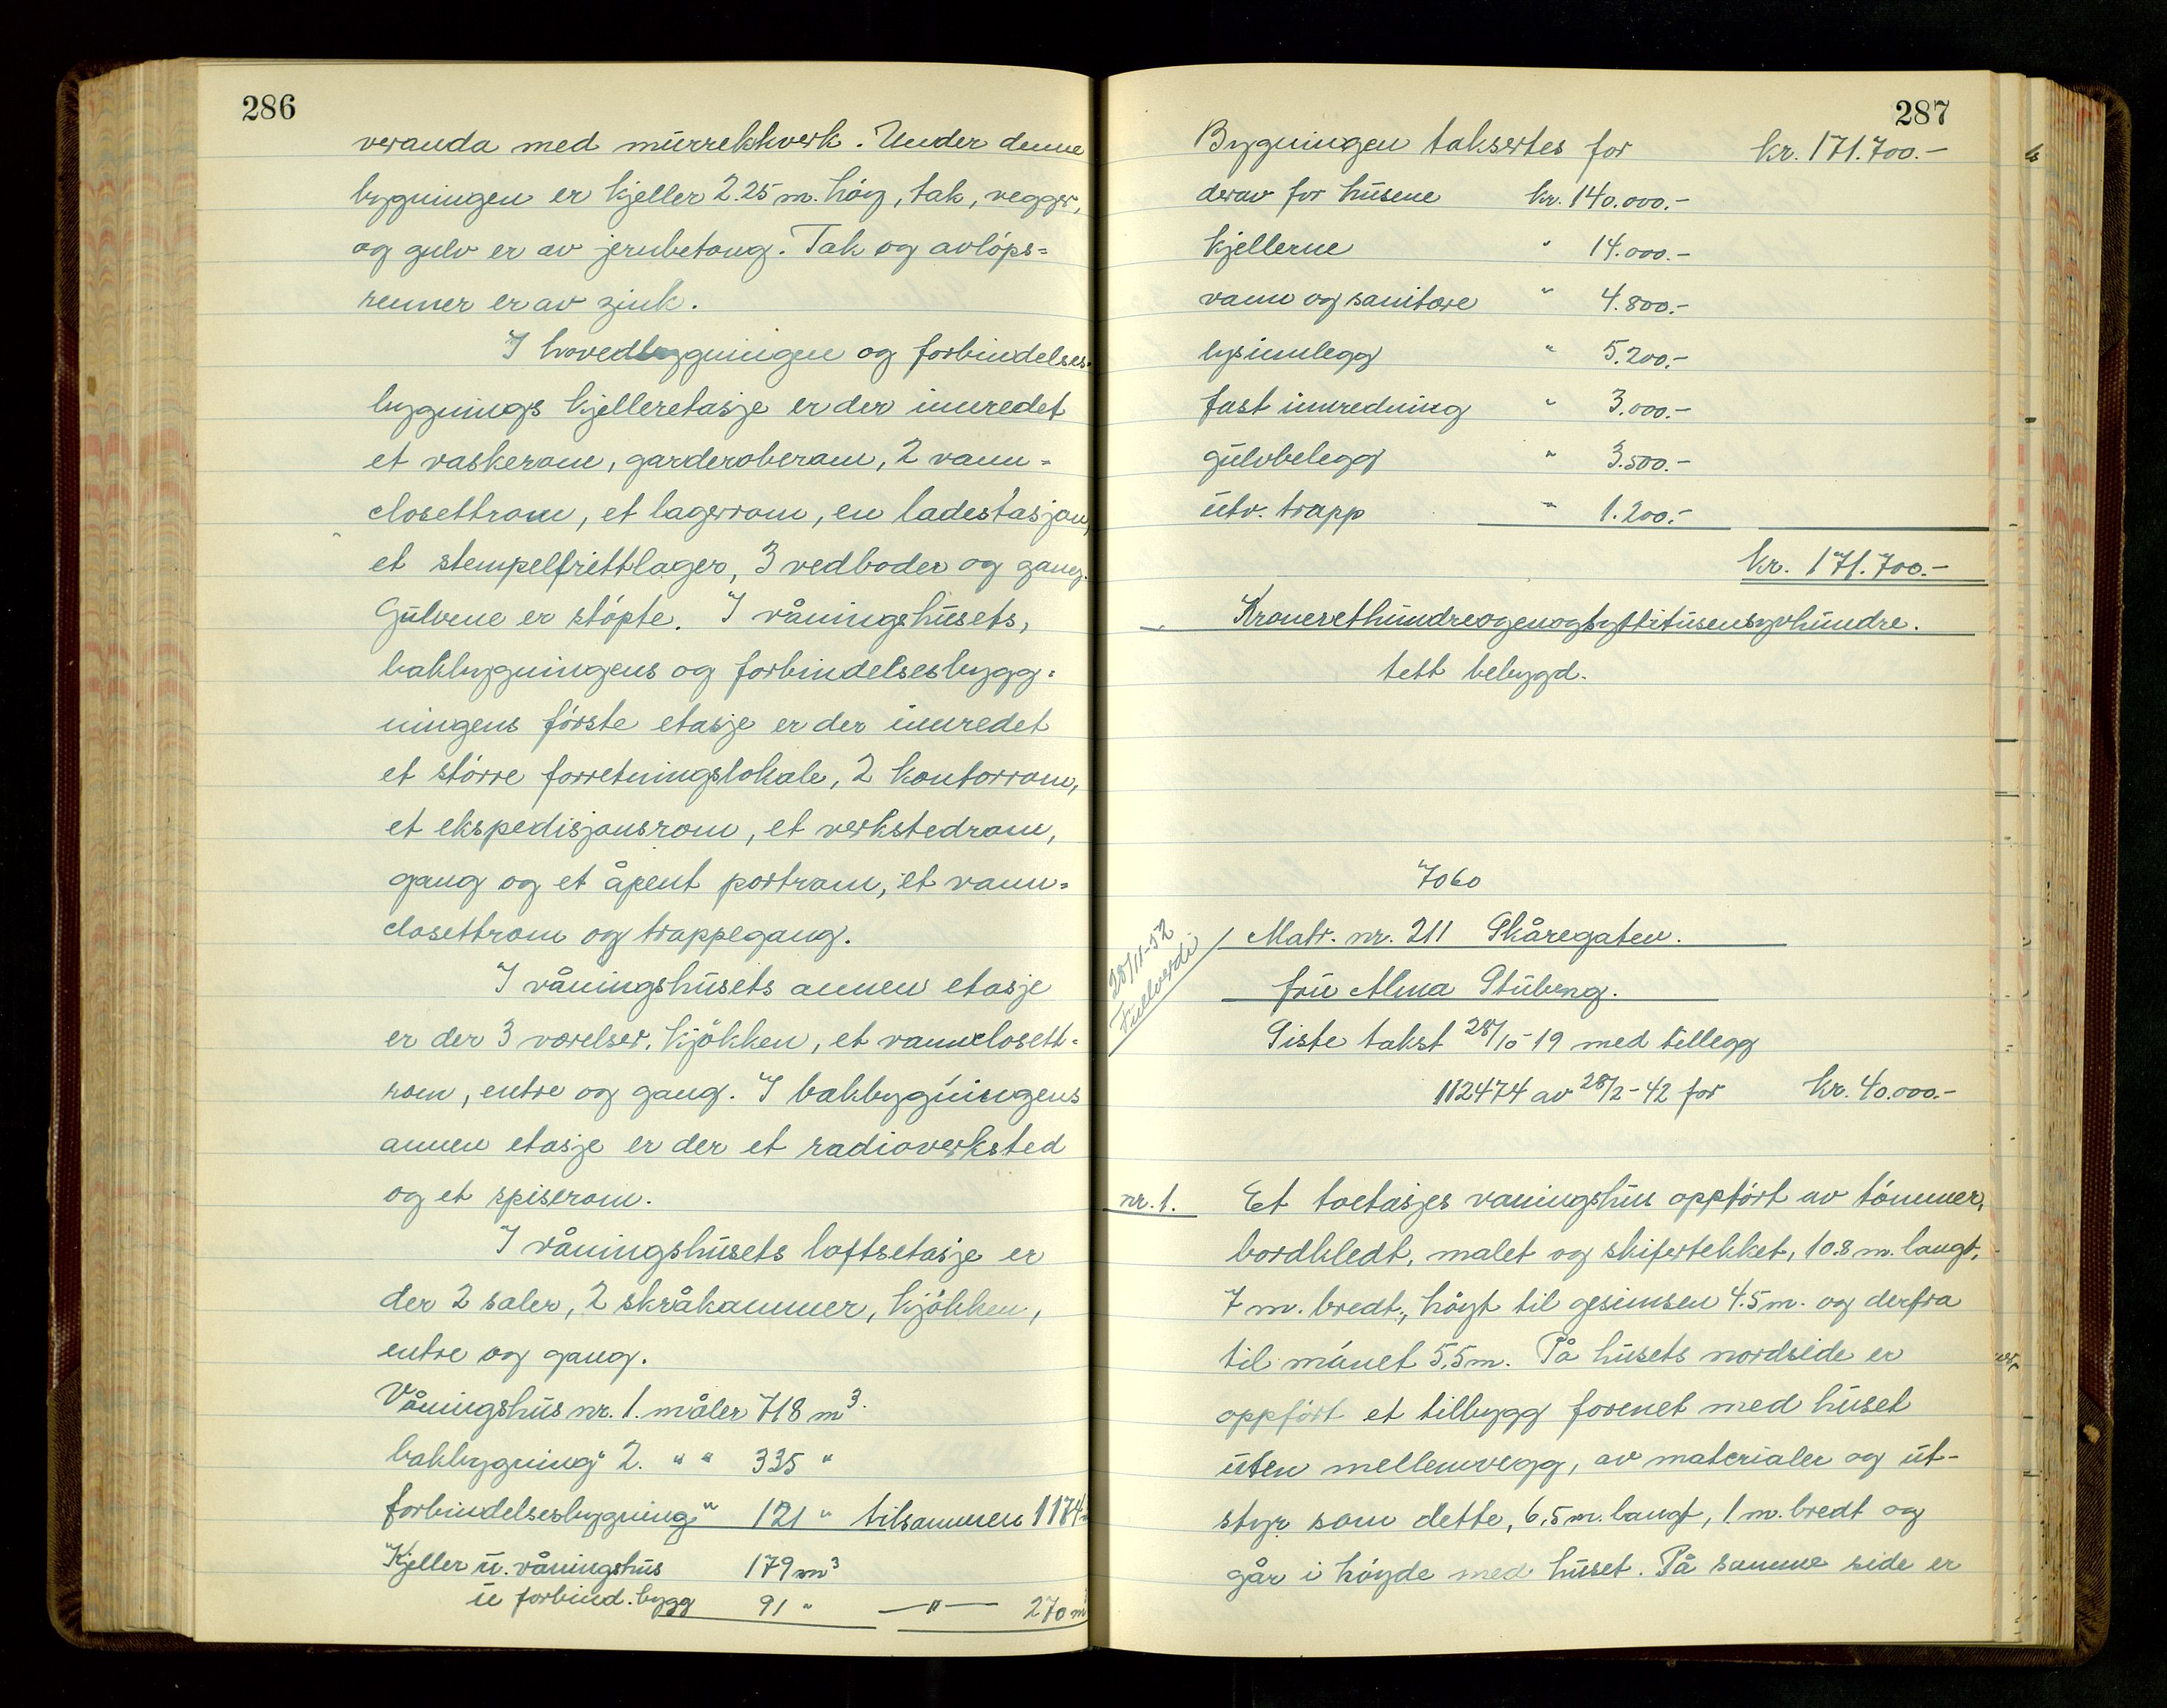 286
veranda med murrekkverk. Under denne
bygningen er kjeller 2.25 m. høy, tak, vegger,
og gulv er av jernbetong. Tak og avløps=
renner er av zink.
I hovedbygningen og forbindelses=
bygnings kjelleretasje er der innredet
et vaskerom, garderoberom, 2 vann=
closettrom, et lagerrom, en ladestasjon,
et stempelfrittlager, 3 vedboder og gang.
Gulvene er støpte. I våningshusets,
bakbygningens og forbindelsesbygg=
ningens første etasje er der innredet
et større forretningslokale, 2 kontorrom,
et ekspedisjonsrom, et verkstedrom,
gang og et åpent portrom, et vann=
closettrom og trappegang.
I våningshusets annen etasje
er der 3 værelser, kjøkken, et vannclosett=
rom, entre og gang. I bakbygningens
annen etasje er der et radioverksted
og et spiserom.
I våningshusets loftsetasje er
der 2 saler, 2 skråkammer, kjøkken,
entre og gang.
Våningshus nr. 1. måler 718 m³.
bakbygning " 2. " " 335 "
forbindelsesbygning " 121 " tilsammen 1174
Kjeller u. våningshus 179 m³
u forbind. bygg 91 " —"— 270 m³
287
Bygningen takseres for kr. 171.700.-
derav for husene kr. 140.000.-
kjellerne " 14.000.-
vann og sanitære " 4.800.-
lysinnlegg " 5.200.-
fast innredning " 3.000.-
gulvbelegg " 3.500.-
utv. trapp " 1.200.-
kr. 171.700.-
Kronerethundreogenogsyttitusensyvhundre.
tett bebygd.
7060
28/11-52
Fullverdi
Matr. nr. 211 Skåregaten.
fru Alma Stuberg.
Siste takst 28/10-19 med tillegg
112474 av 28/2-42 for kr. 40.000.-
nr. 1. Et toetasjes vaningshus oppført av tømmer,
bordkledt, malet og skifertekket, 10.8 m. langt,
7 m. bredt, høyt til gesimsen 4.5 m. og derfra
til mønet 5,5 m. På husets nordside er
oppført et tilbygg forenet med huset
uten mellemvegg, av materialer og ut-
styr som dette, 6,5 m. langt, 1 m. bredt og
går i høyde med huset. På samme side er